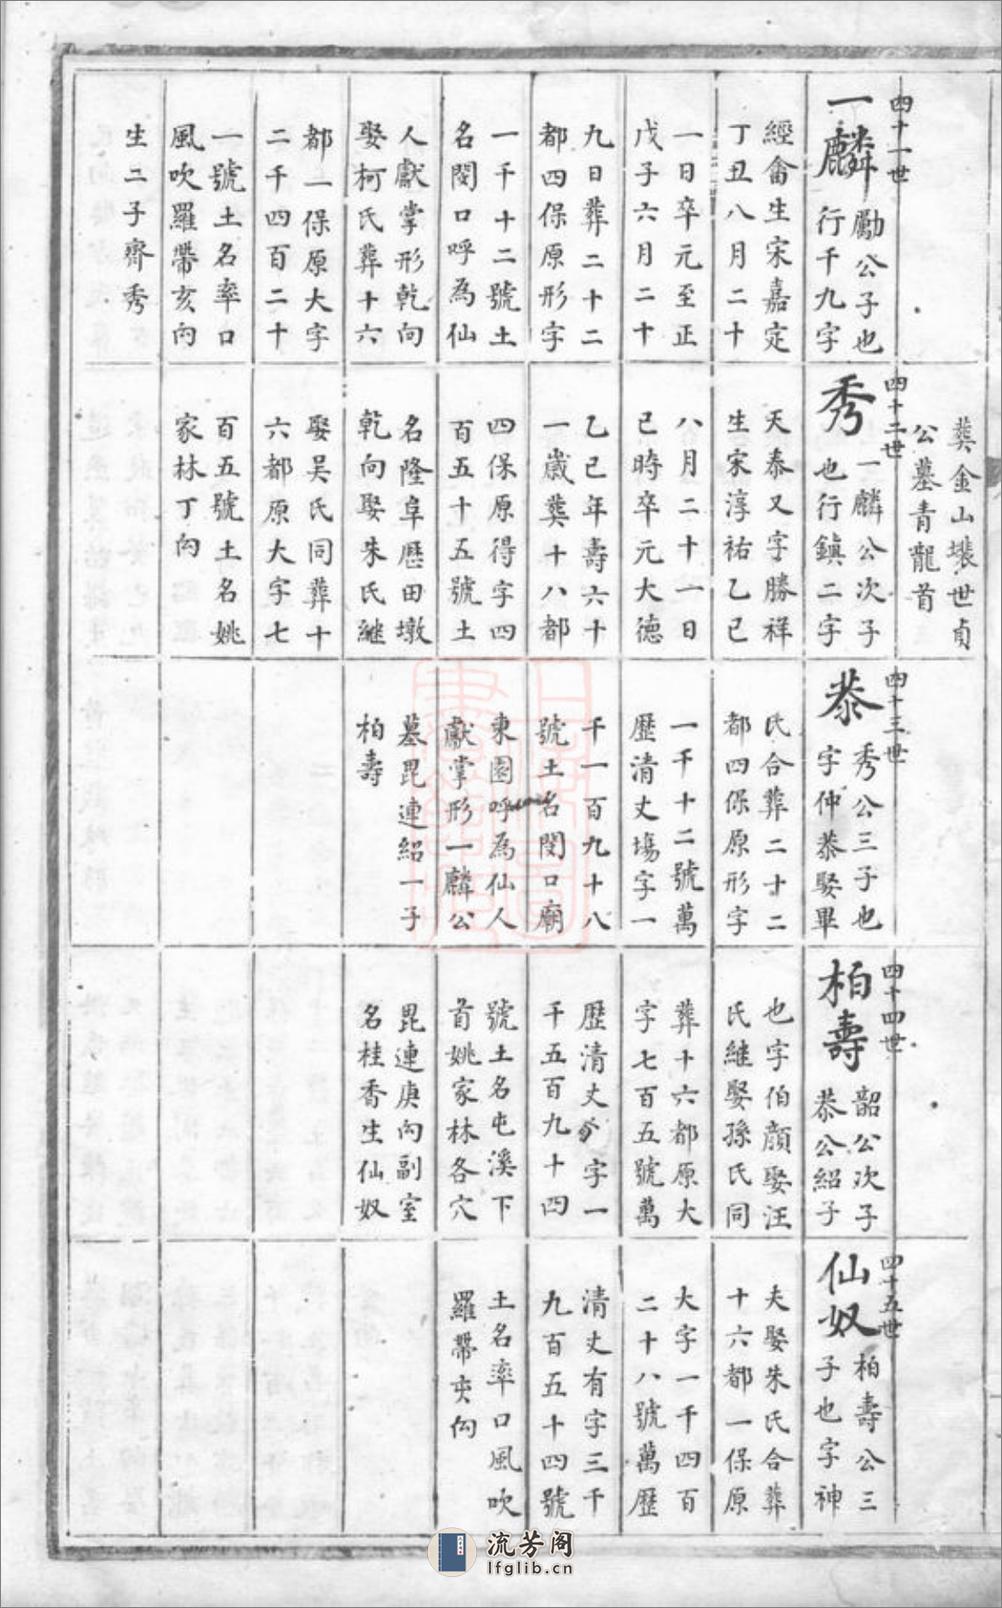 葬金山塝世貞
公墓青龍首
四十一世
一麟
勵公子也
行千九字
經畬生宋嘉定
丁丑八月二十
一日卒元至正
戊子六月二十
九日葬二十二
都四保原形字
一千十二號土
名閔口呼為仙
人獻掌形乾向
娶柯氏葬十六
都一保原大字
二千四百二十
一號土名率口
風吹羅帶亥向
生二子齊秀
四十二世
秀
一麟公次子
也行鎮二字
天泰又字勝祥
生宋淳祐乙巳
八月二十一日
巳時卒元大德
乙巳年壽六十
一歲葬十八都
四保原得字四
百五十五號土
名隆阜歷田墩
乾向娶朱氏繼
娶吳氏同葬十
六都原大字七
百五號土名姚
家林丁向
四十三世
恭
秀公三子也
字仲恭娶畢
氏合葬二十二
都四保原形字
一千十二號萬
歷清丈塲字一
千一百九十八
號土名閔口廟
東園呼為仙人
獻掌形一麟公
墓毘連紹一子
柏壽
四十四世
柏壽
韶公次子
恭公紹子
也字伯顏娶汪
氏繼娶孫氏同
葬十六都原大
字七百五號萬
歷清丈字一
千五百九十四
號土名屯溪下
首姚家林各穴
毘連庚向副室
名桂香生仙奴
四十五世
仙奴
柏壽公三
子也字神
夫娶朱氏合葬
十六都一保原
大字一千四百
二十八號萬歷
清丈有字三千
九百五十四號
土名率口風吹
羅帶亥向
流芳阁
lfglib.cn